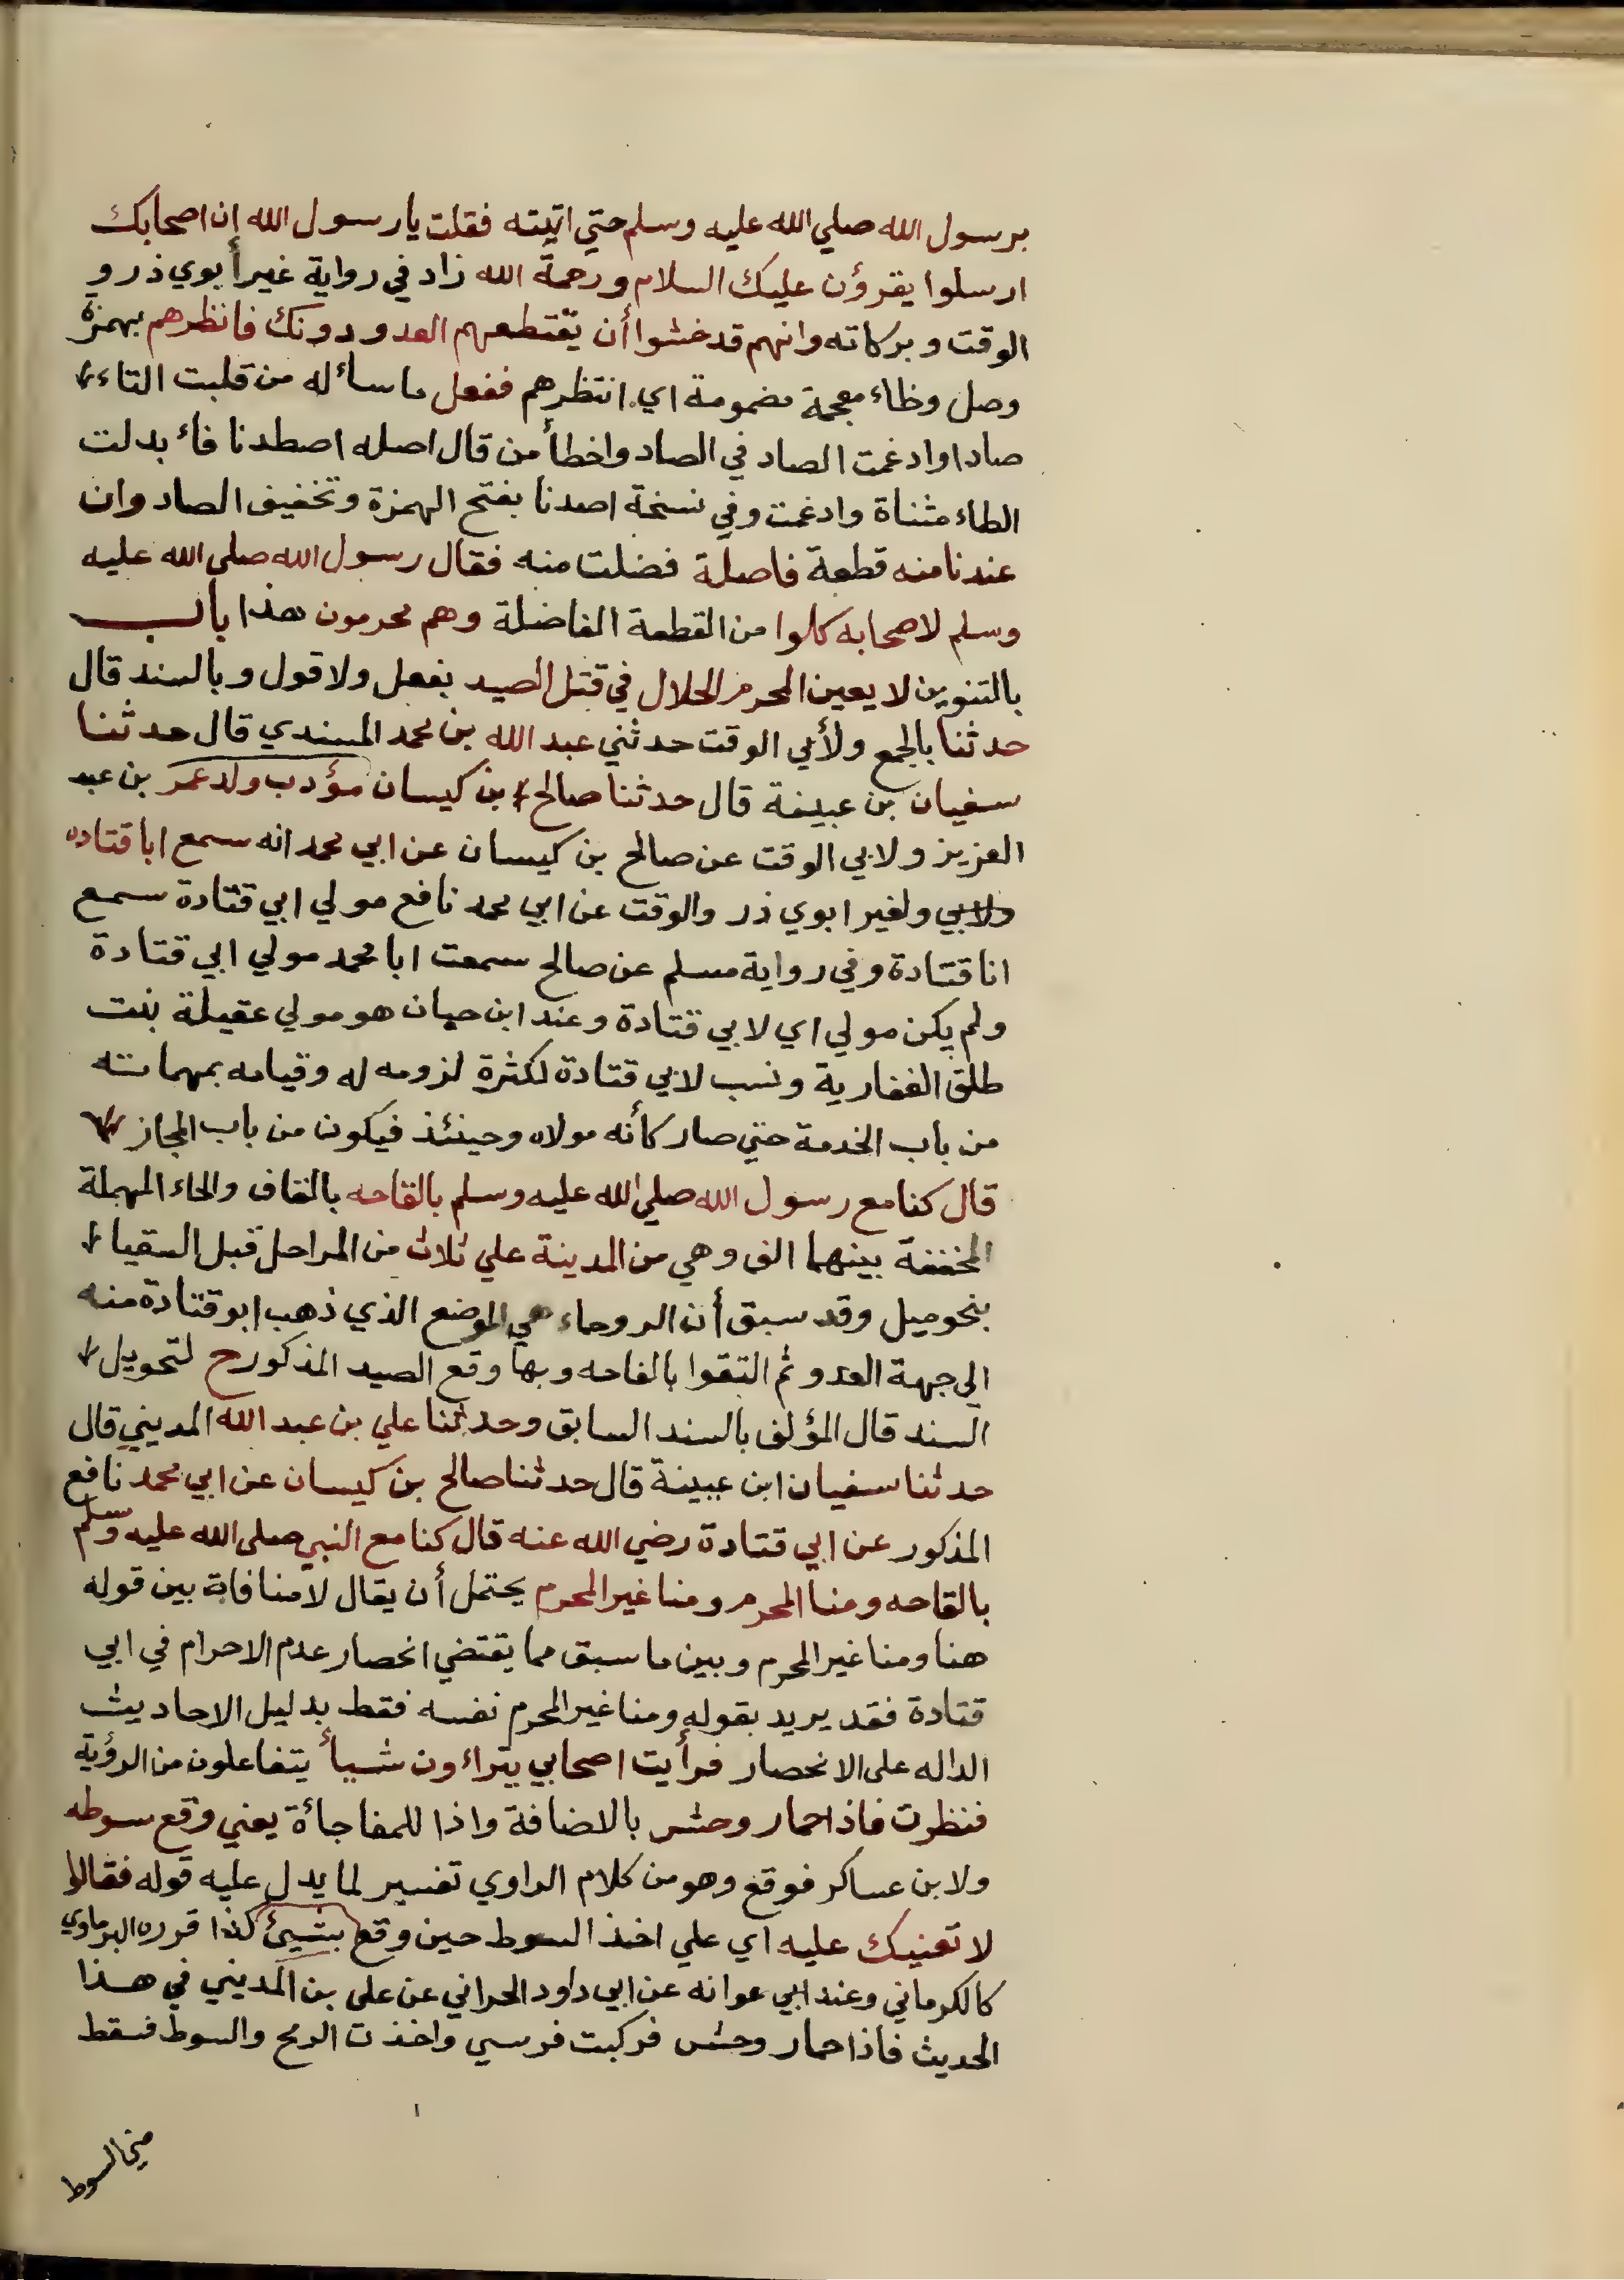 برسول الله صلي الله عليه وسلم حتي اتيته فقلت يا رسول الله إن اصحابك
ارسلوا يقرؤن عليك السلام ورحمة الله زاد في رواية غير أبوي ذر و
الوقت وبركاته وانهم قد خشوا أن يقتطعهم العدو دونك فانظرهم بهمزة
وصل وظاء معجمة مضمومة اي انتظرهم ففعل ما سأله من قلبت التاء
صادا وادغمت الصاد في الصاد واخطأ من قال اصله اصطدنا فأبدلت
الطاء مثناة وادغمت وفي نسخة اصدنا بفتح الهمزة وتخفيف الصاد وان
عندنا منه قطعة فاصلة فضلت منه فقال رسول الله صلى الله عليه
وسلم لاصحابه كلوا من القطعة الفاضلة وهم محرمون هذا باب
بالتنوين لا يعين المحرم الحلال في قتل الصيد بفعل ولا قول وبالسند قال
حدثنا بالجمع ولأبي الوقت حدثني عبد الله بن محمد المسندي قال حدثنا
سفيان بن عيينة قال حدثنا صالح بن كيسان مؤدب ولد عمر بن عبد
العزيز ولابي الوقت عن صالح بن كيسان عن ابي محمد انه سمع ابا قتاده
ولابي ولغير ابوي ذر والوقت عن ابي محمد نافع مولي ابي قتادة سمع
انا قتادة وفي رواية مسلم عن صالح سمعت ابا محمد مولي ابي قتادة
ولم يكن مولي اي لابي قتادة وعند ابن حبان هو مولي عقيلة بنت
طلق الغفارية ونسب لابي قتادة لكثرة لزومه له وقيامه بمهماته
من باب الخدمة حتي صار كأنه مولاه وحينئذ فيكون من باب المجاز
قال كنا مع رسول الله صلي الله عليه وسلم بالقاحه بالقاف والحاء المهملة
المخففة بينهما الف وهي من المدينة علي ثلاث من المراحل قبل السقيا
بنحو ميل وقد سبق أن الروحاء هي الموضع الذي ذهب ابو قتادة منه
الي جهة العدو ثم التقوا بالقاحه وبها وقع الصيد المذكور ح لتحويل
السند قال المؤلف بالسند السابق وحدثنا علي بن عبد الله المديني قال
حدثنا سفيان ابن عيينة قال حدثنا صالح بن كيسان عن ابي محمد نافع
المذكور عن ابي قتادة رضي الله عنه قال كنا مع النبي صلى الله عليه وسلم
بالقاحه ومنا المحرم ومنا غير المحرم يحتمل أن يقال لا منافاة بين قوله
هنا ومنا غير المحرم وبين ما سبق مما يقتضي انحصار عدم الاحرام في ابي
قتادة فقد يريد بقوله ومنا غير المحرم نفسه فقط بدليل الاحاديث
الداله على الانحصار فرأيت اصحابي يتراءون شيأ يتفاعلون من الرؤية
فنظرت فاذا حمار وحش بالاضافة واذا للمفاجأة يعني وقع سوطه
ولابن عساكر فوقع وهو من كلام الراوي تفسير لما يدل عليه قوله فقالوا
لا نعينك عليه اي علي اخذ السوط حين وقع بشيئ كذا قرره البرماوي
كالكرماني وعند ابي عوانه عن ابي داود الحراني عن على بن المديني في هذا
الحديث فاذا حمار وحش فركبت فرسي واخذت الرمح والسوط فسقط
مني السوط